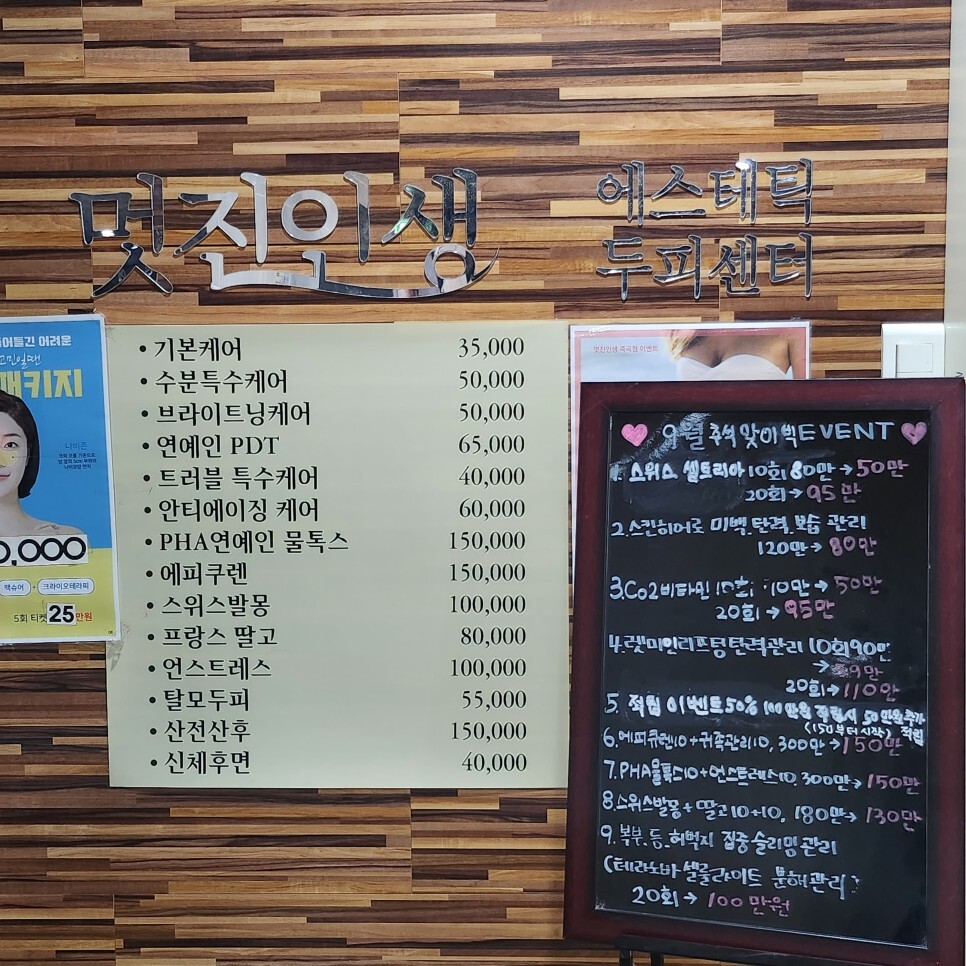 멋진인생
에스테틱
두피센터
어려운
패키지
0,000
크라이오테라피
5회 티켓 25만원
• 기본케어 35,000
• 수분특수케어 50,000
• 브라이트닝케어 50,000
• 연예인 PDT 65,000
• 트러블 특수케어 40,000
• 안티에이징 케어 60,000
• PHA연예인 물톡스 150,000
• 에피큐렌 150,000
• 스위스발몽 100,000
• 프랑스 딸고 80,000
• 언스트레스 100,000
• 탈모두피 55,000
• 산전산후 150,000
• 신체후면 40,000
멋진인생 이벤트
9월 추석 맞이 빅 EVENT
1. 스위스 셀토리아 10회 80만 → 50만
20회 → 95만
2. 스킨히어로 미백. 탄력. 보습 관리
120만 → 80만
3. Co2 비타민 10회 10만 → 50만
20회 → 95만
4. 렛미인리프팅탄력관리 10회 90만
→ 9만
20회 → 110만
5. 적립 이벤트 50% 100만원 적립시 50만원 추가
(150부터 시작) 적립
6. 에피큐렌10 + 귀족관리10, 300만 → 150만
7. PHA물톡스10 + 언스트레스10, 300만 → 150만
8. 스위스발몽 + 딸고 10+10, 180만 → 130만
9. 복부. 등. 허벅지 집중 슬리밍 관리
(테라노바 셀룰라이트 분해관리)
20회 → 100만원